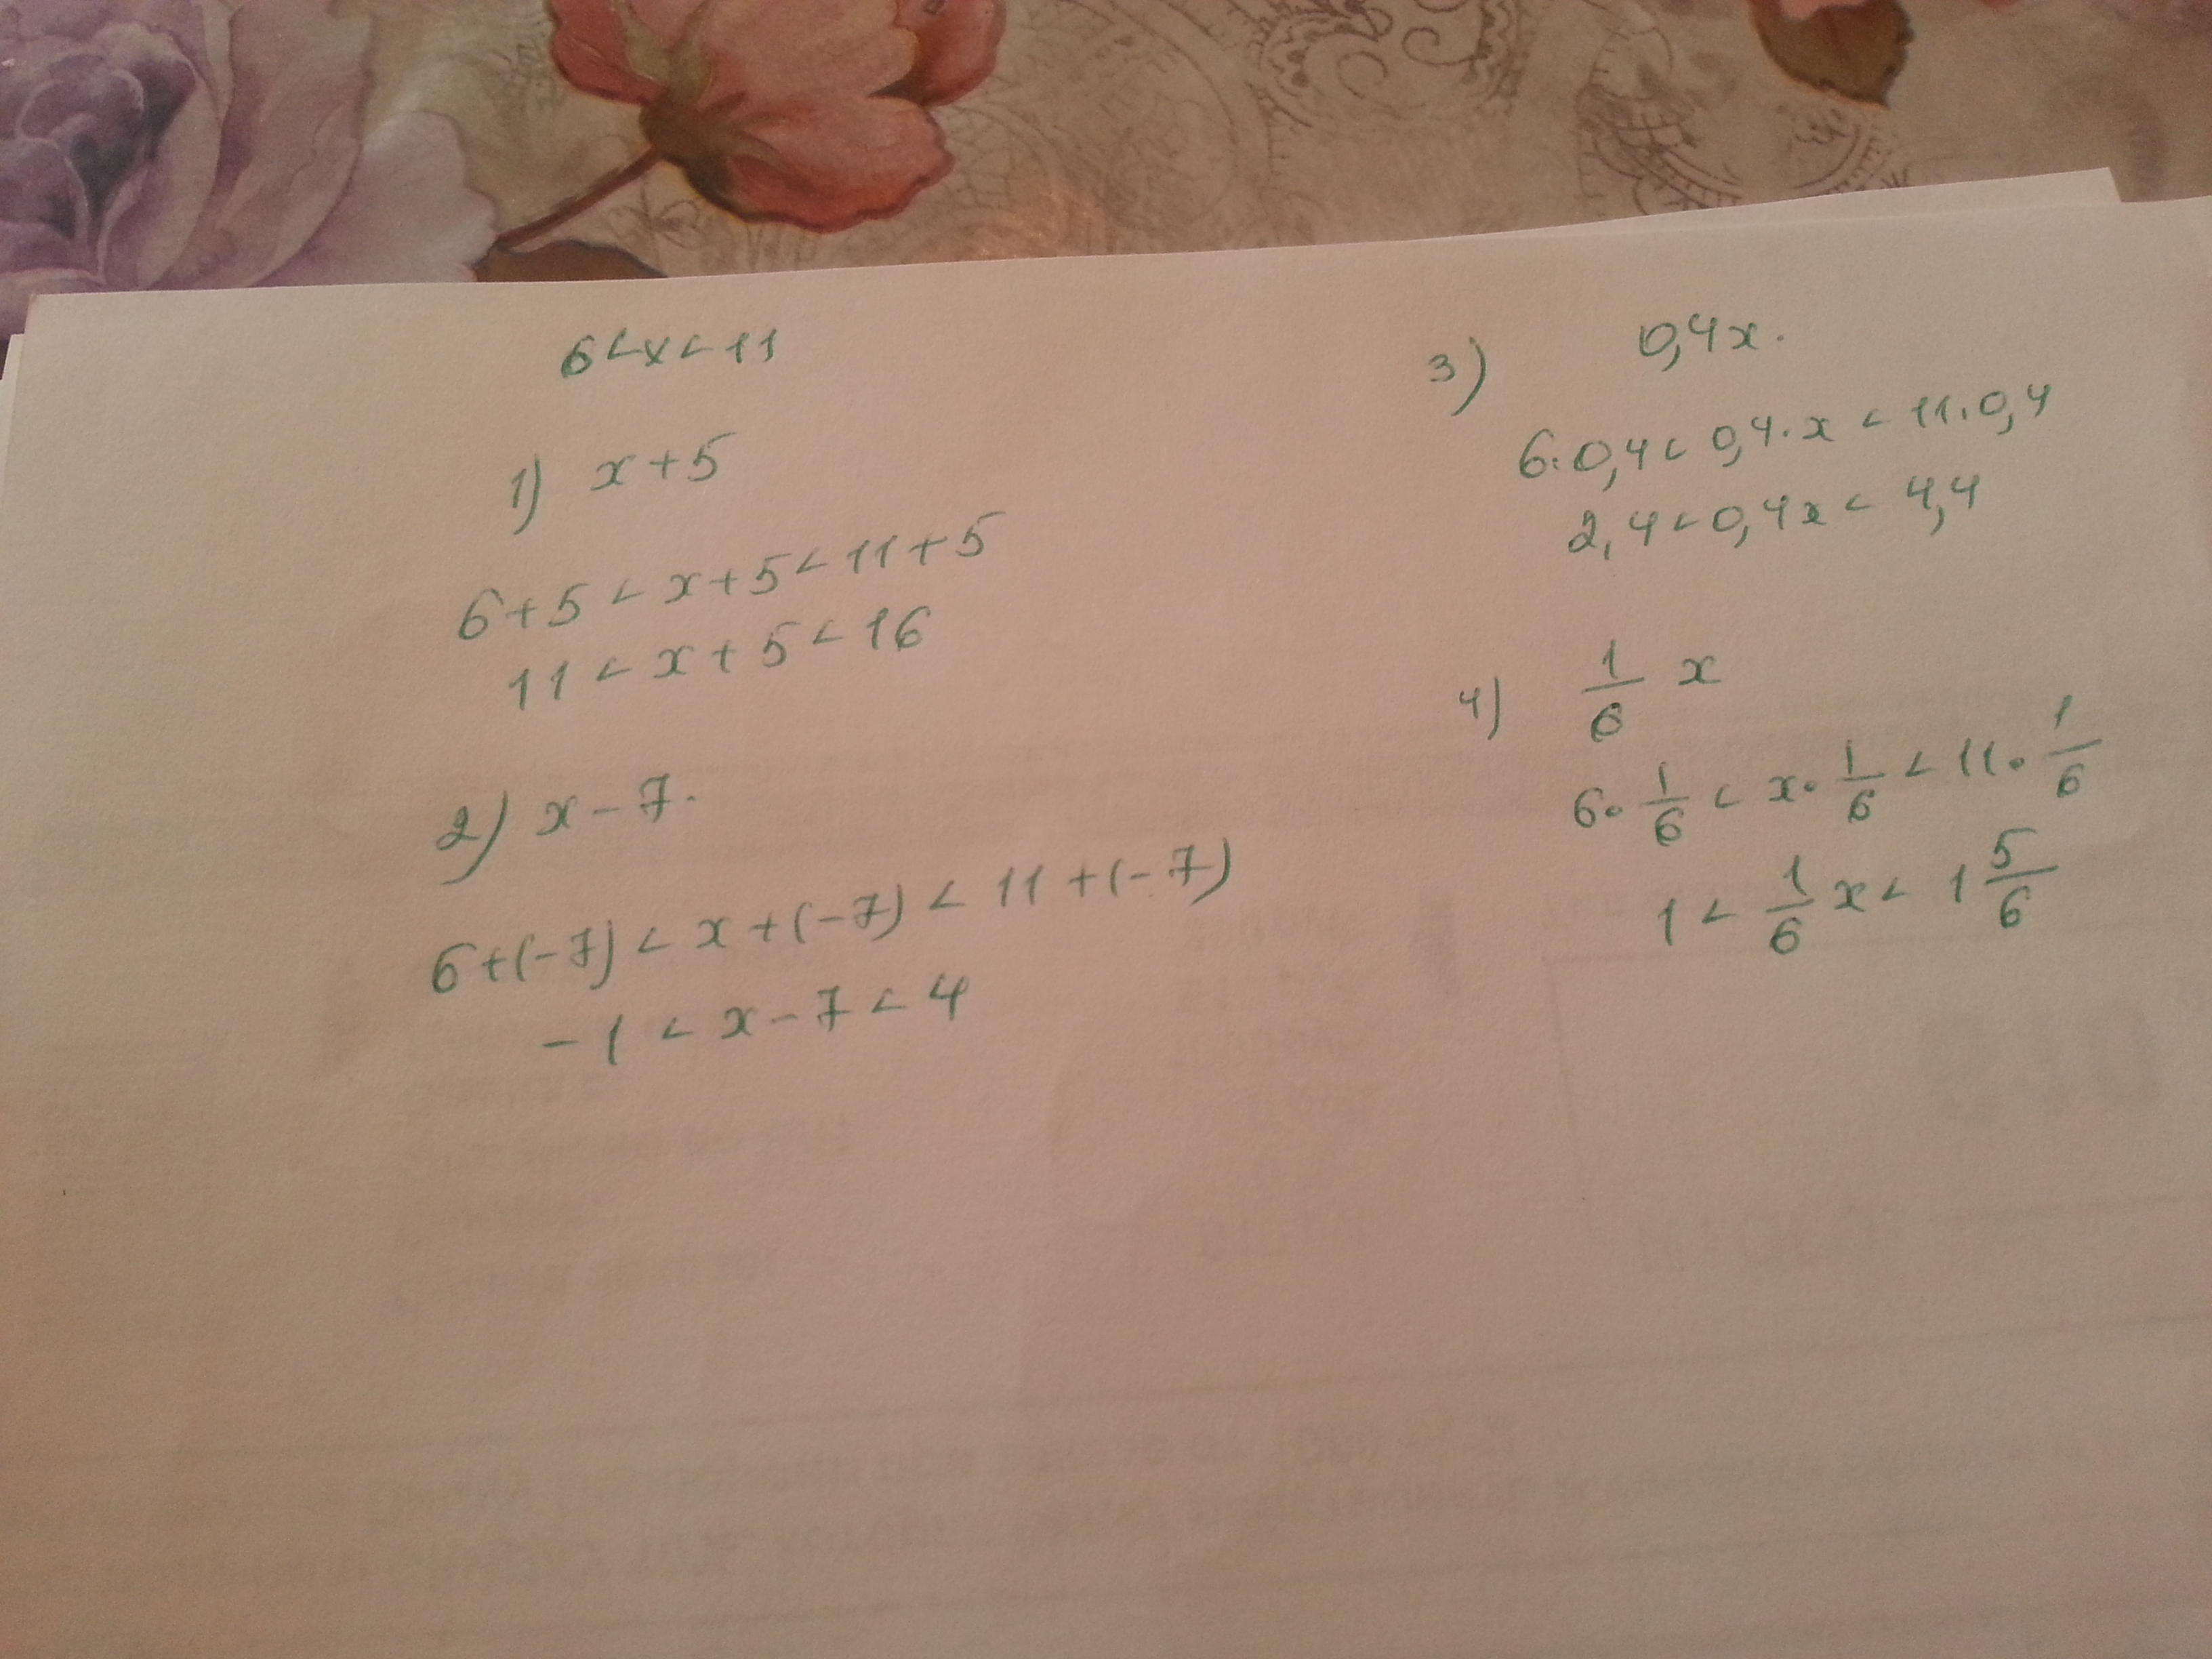 6<x<11
1) x+5
6+5<x+5<11+5
11<x+5<16
2) x-7.
6+(-7)<x+(-7)<11+(-7)
-1<x-7<4
3) 0,4x.
6·0,4<0,4·x<11·0,4
2,4<0,4x<4,4
4) 1/6 x
6·1/6<x·1/6<11·1/6
1<1/6x<1 5/6